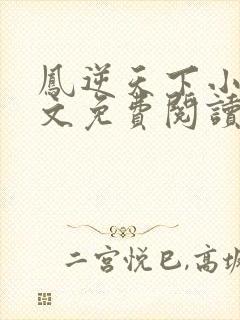 鳳逆天下小
文免費閱讀
二宮悦巳,高坂